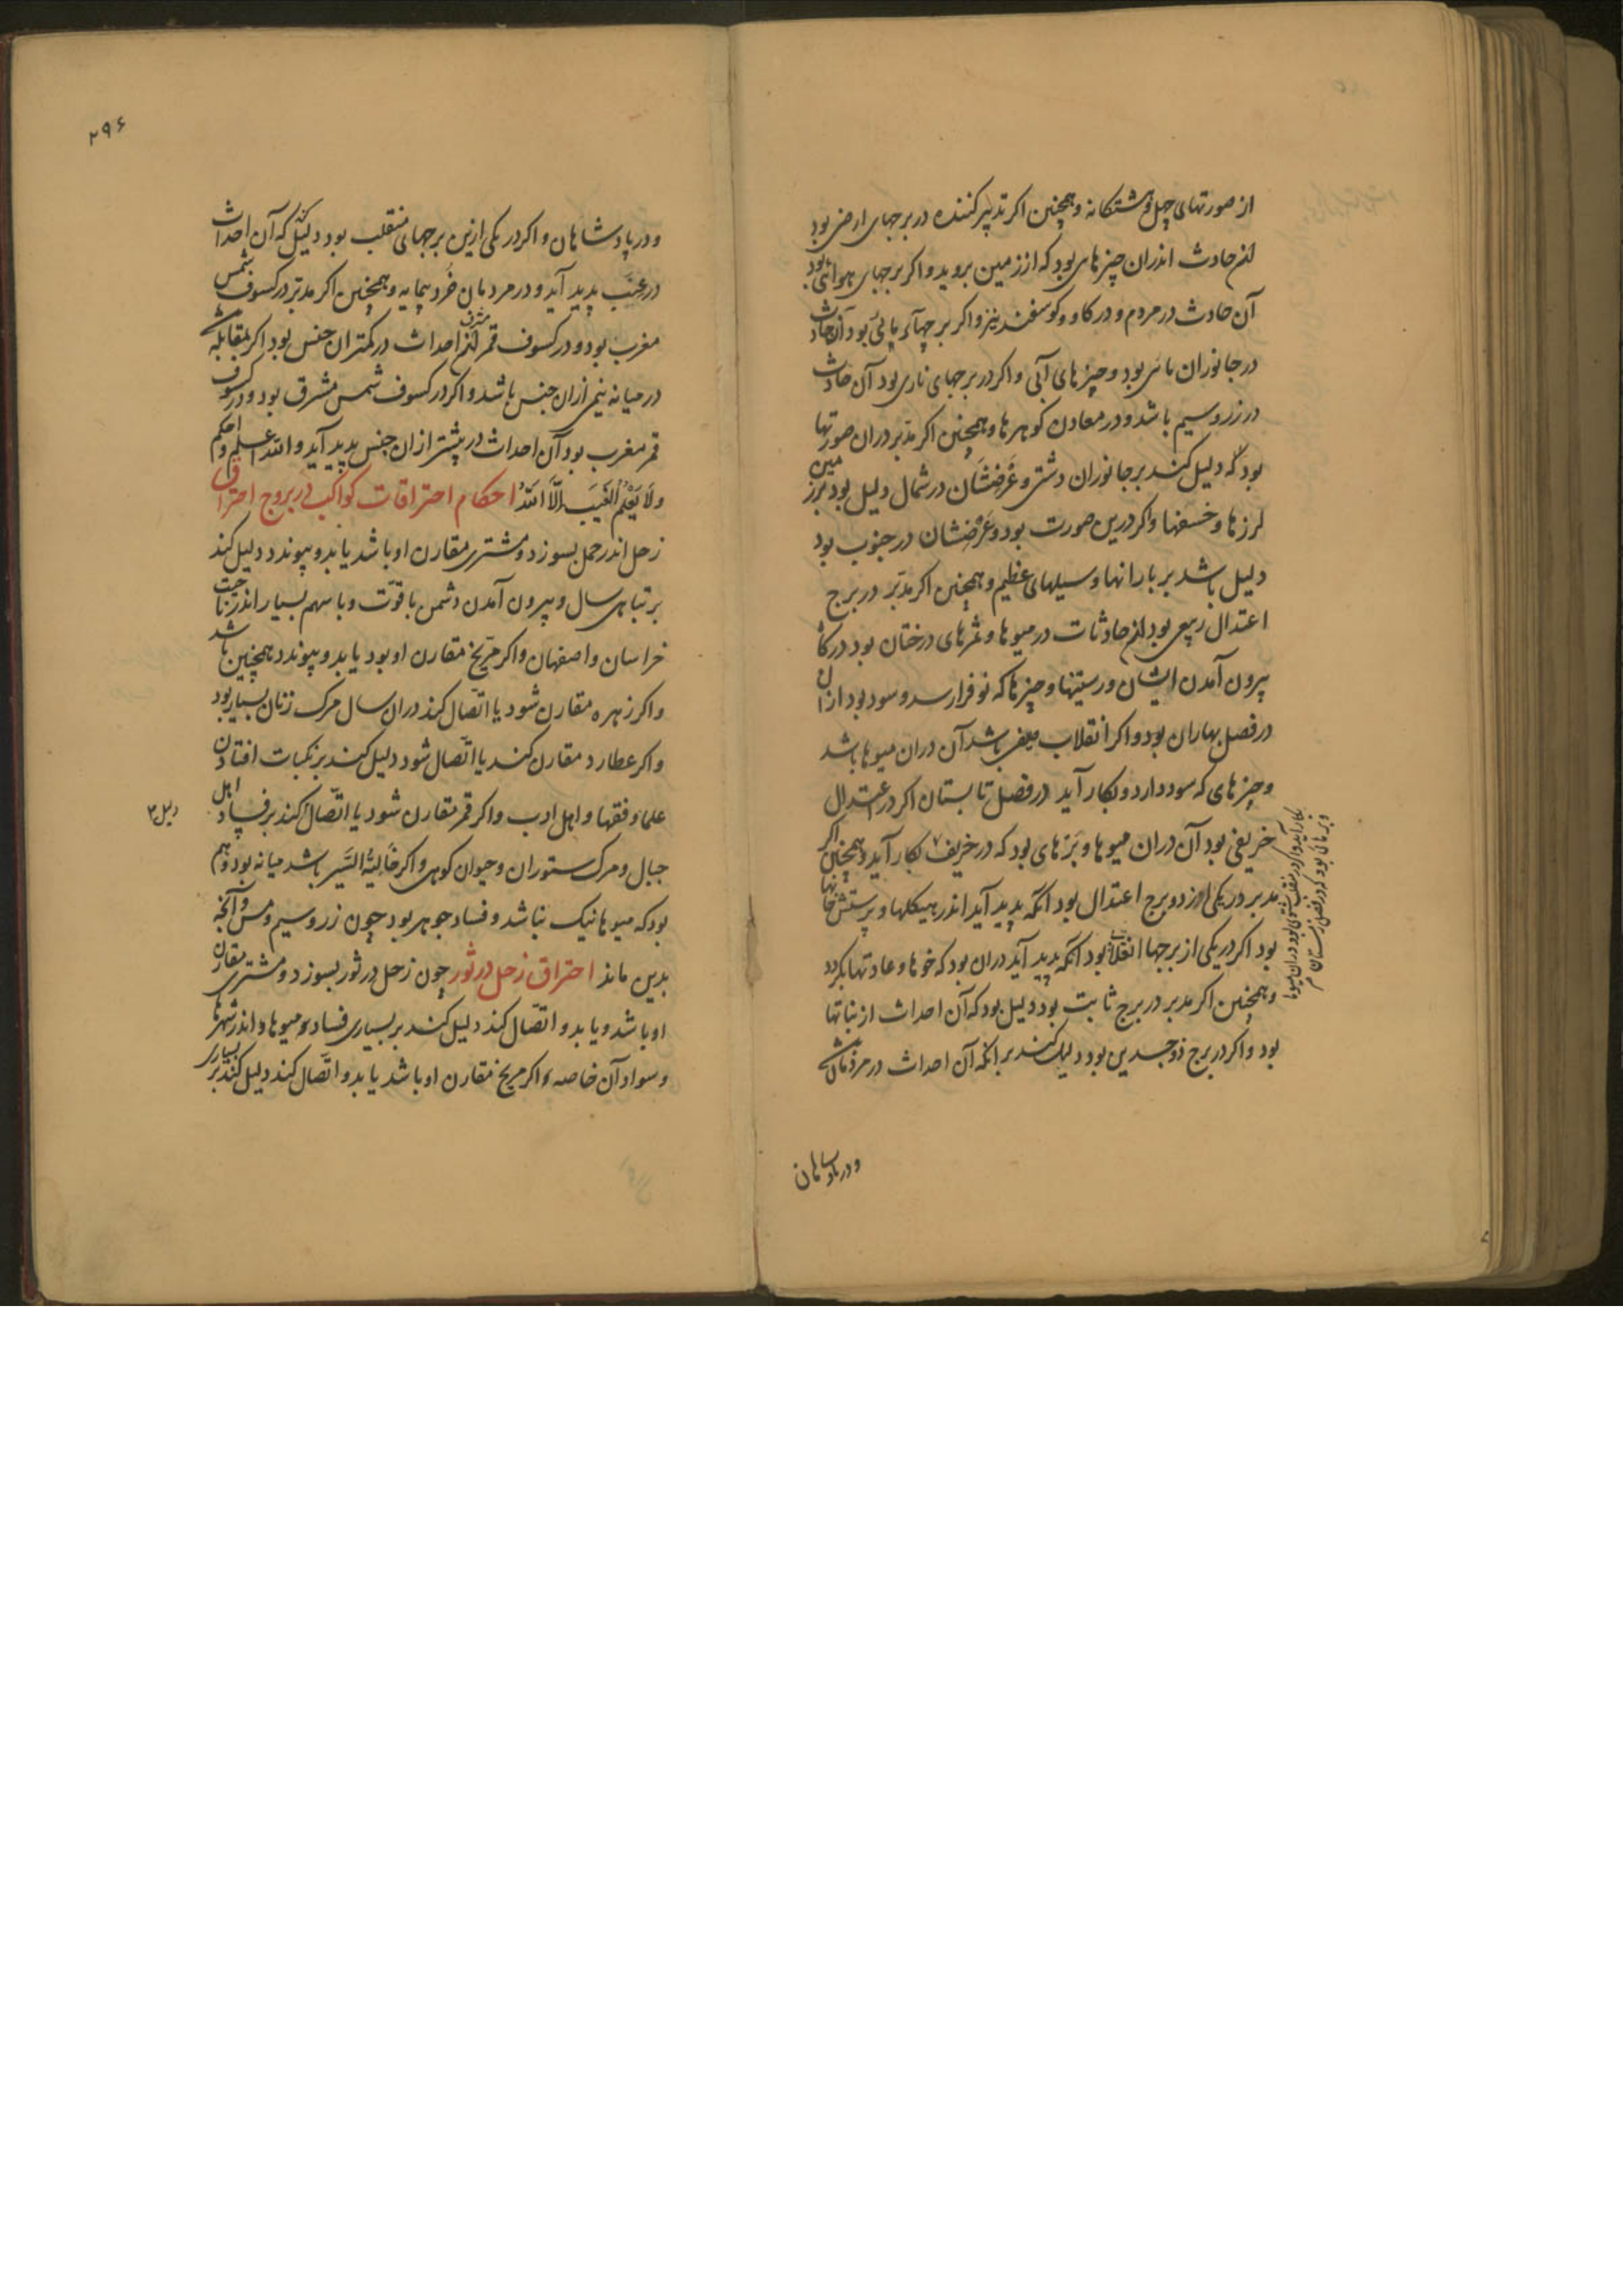 از صورتهای چهل وهشتکانه و همچنین اکر تدبیر کننده در برجهای ارضی بود
حادث اندران چیزهای بود که از زمین بروید و اکر برجهای هوائی بود
آن حادث در مردم و در کاو و کوسفند نیز و اکر برجهاء بود آن حادث
در جانوران بود و چیزهای آبی و اکر در برجهای ناری بود آن حادث
در زر و سیم باشد و در معادن کوهرها و همچنین اکر مدبر دران صورتها
بود که دلیل کند بر جانوران دشتی و عرضشان در شمال دلیل بود بر زمین
لرزها و خسفها و اکر درین صورت بود و عرضشان در جنوب بود
دلیل باشد بر بارانها و سیلهای عظیم و همچنین اکر مدبر در برج
اعتدال ربیعی بود حادثات در میوها و ثمرهای درختان بود در کاه
بیرون آمدن ایشان و رستنیها و چیزها که نو فرا رسد و سود بود ازان
در فصل بهاران بود و اکر انقلاب باشد آن دران میوها باشد
و چیزهای که سود دارد و بکار آید در فصل تابستان اکر در اعتدال
خریفی بود آن دران میوها و بَرّهای بود که در خریف بکار آید و همچنین اکر
مدبر در یکی از دو برج اعتدال بود آنکه پدید آید اندر هیکلها و پرستش خانها
بود اکر در یکی از برجها انقلاب بود آنکه پدید آید دران بود که خوها و عادتها بکردد
و همچنین اکر مدبر در برج ثابت بود دلیل بود که آن احداث از بناتها
بود و اکر در برج ذوجسدین بود دلیل کند بر آنکه آن احداث در مردمان باشد
بکار آید و اکر در منقلب شتوی بود دران میوها
و بَرّهائی بود که در فصل زمستان
و در پادشاهان
۲۹۶
و در پادشاهان و اکر در یکی ازین برجهای منقلب بود دلیل کند که آن احداث
در پدید آید و در مردمان خرد بیمایه و همچنین اکر مدبر در کسوف شمس
مغرب بود و در کسوف قمر مشرق احداث در کمتران جنس بود اکر بمقابله باشد
در میانه نیمی ازان جنس باشد و اکر در کسوف شمس مشرق بود و در کسوف
قمر مغرب بود آن احداث در بیشتر ازان جنس پدید آید و الله اعلم و احکم
ولا یَعْلَمُ الغَیبَ اِلّا اللهُ احکام احتراقات کواکب در بروج احتراق
زحل اندر حمل بسوزد و مشتری مقارن او باشد یا بدو پیوندد دلیل کند
بر تباهی سال و بیرون آمدن دشمن باقوت و با سهم بسیار اندر
خراسان و اصفهان و اکر مریخ مقارن او بود یا بدو پیوندد همچنین باشد
و اکر زهره مقارن شود یا اتصال کند دران سال مرک زنان بسیار بود
و اکر عطارد مقارن کند یا اتصال شود دلیل کند بر نکبات افتادن
علما و فقها و اهل ادب و اکر قمر مقارن شود یا اتصال کند بر فساد اهل
دلیل
جبال و مرک ستوران و حیوان کوهی و اکر خالیةُ السَّیر باشد میانه بود و هم
بود که میوها نیک نباشد و فساد جوهر بود چون زر و سیم و مس و آنچه
بدین ماند احتراق زحل در ثور چون زحل در ثور بسوزد و مشتری مقارن
او باشد و یا بدو اتصال کند دلیل کند بر بسیاری فساد و میوها و اندر شهرها
و سواد آن خاصه و اکر مریخ مقارن او باشد یا بدو اتصال کند دلیل کند بر بسیاری